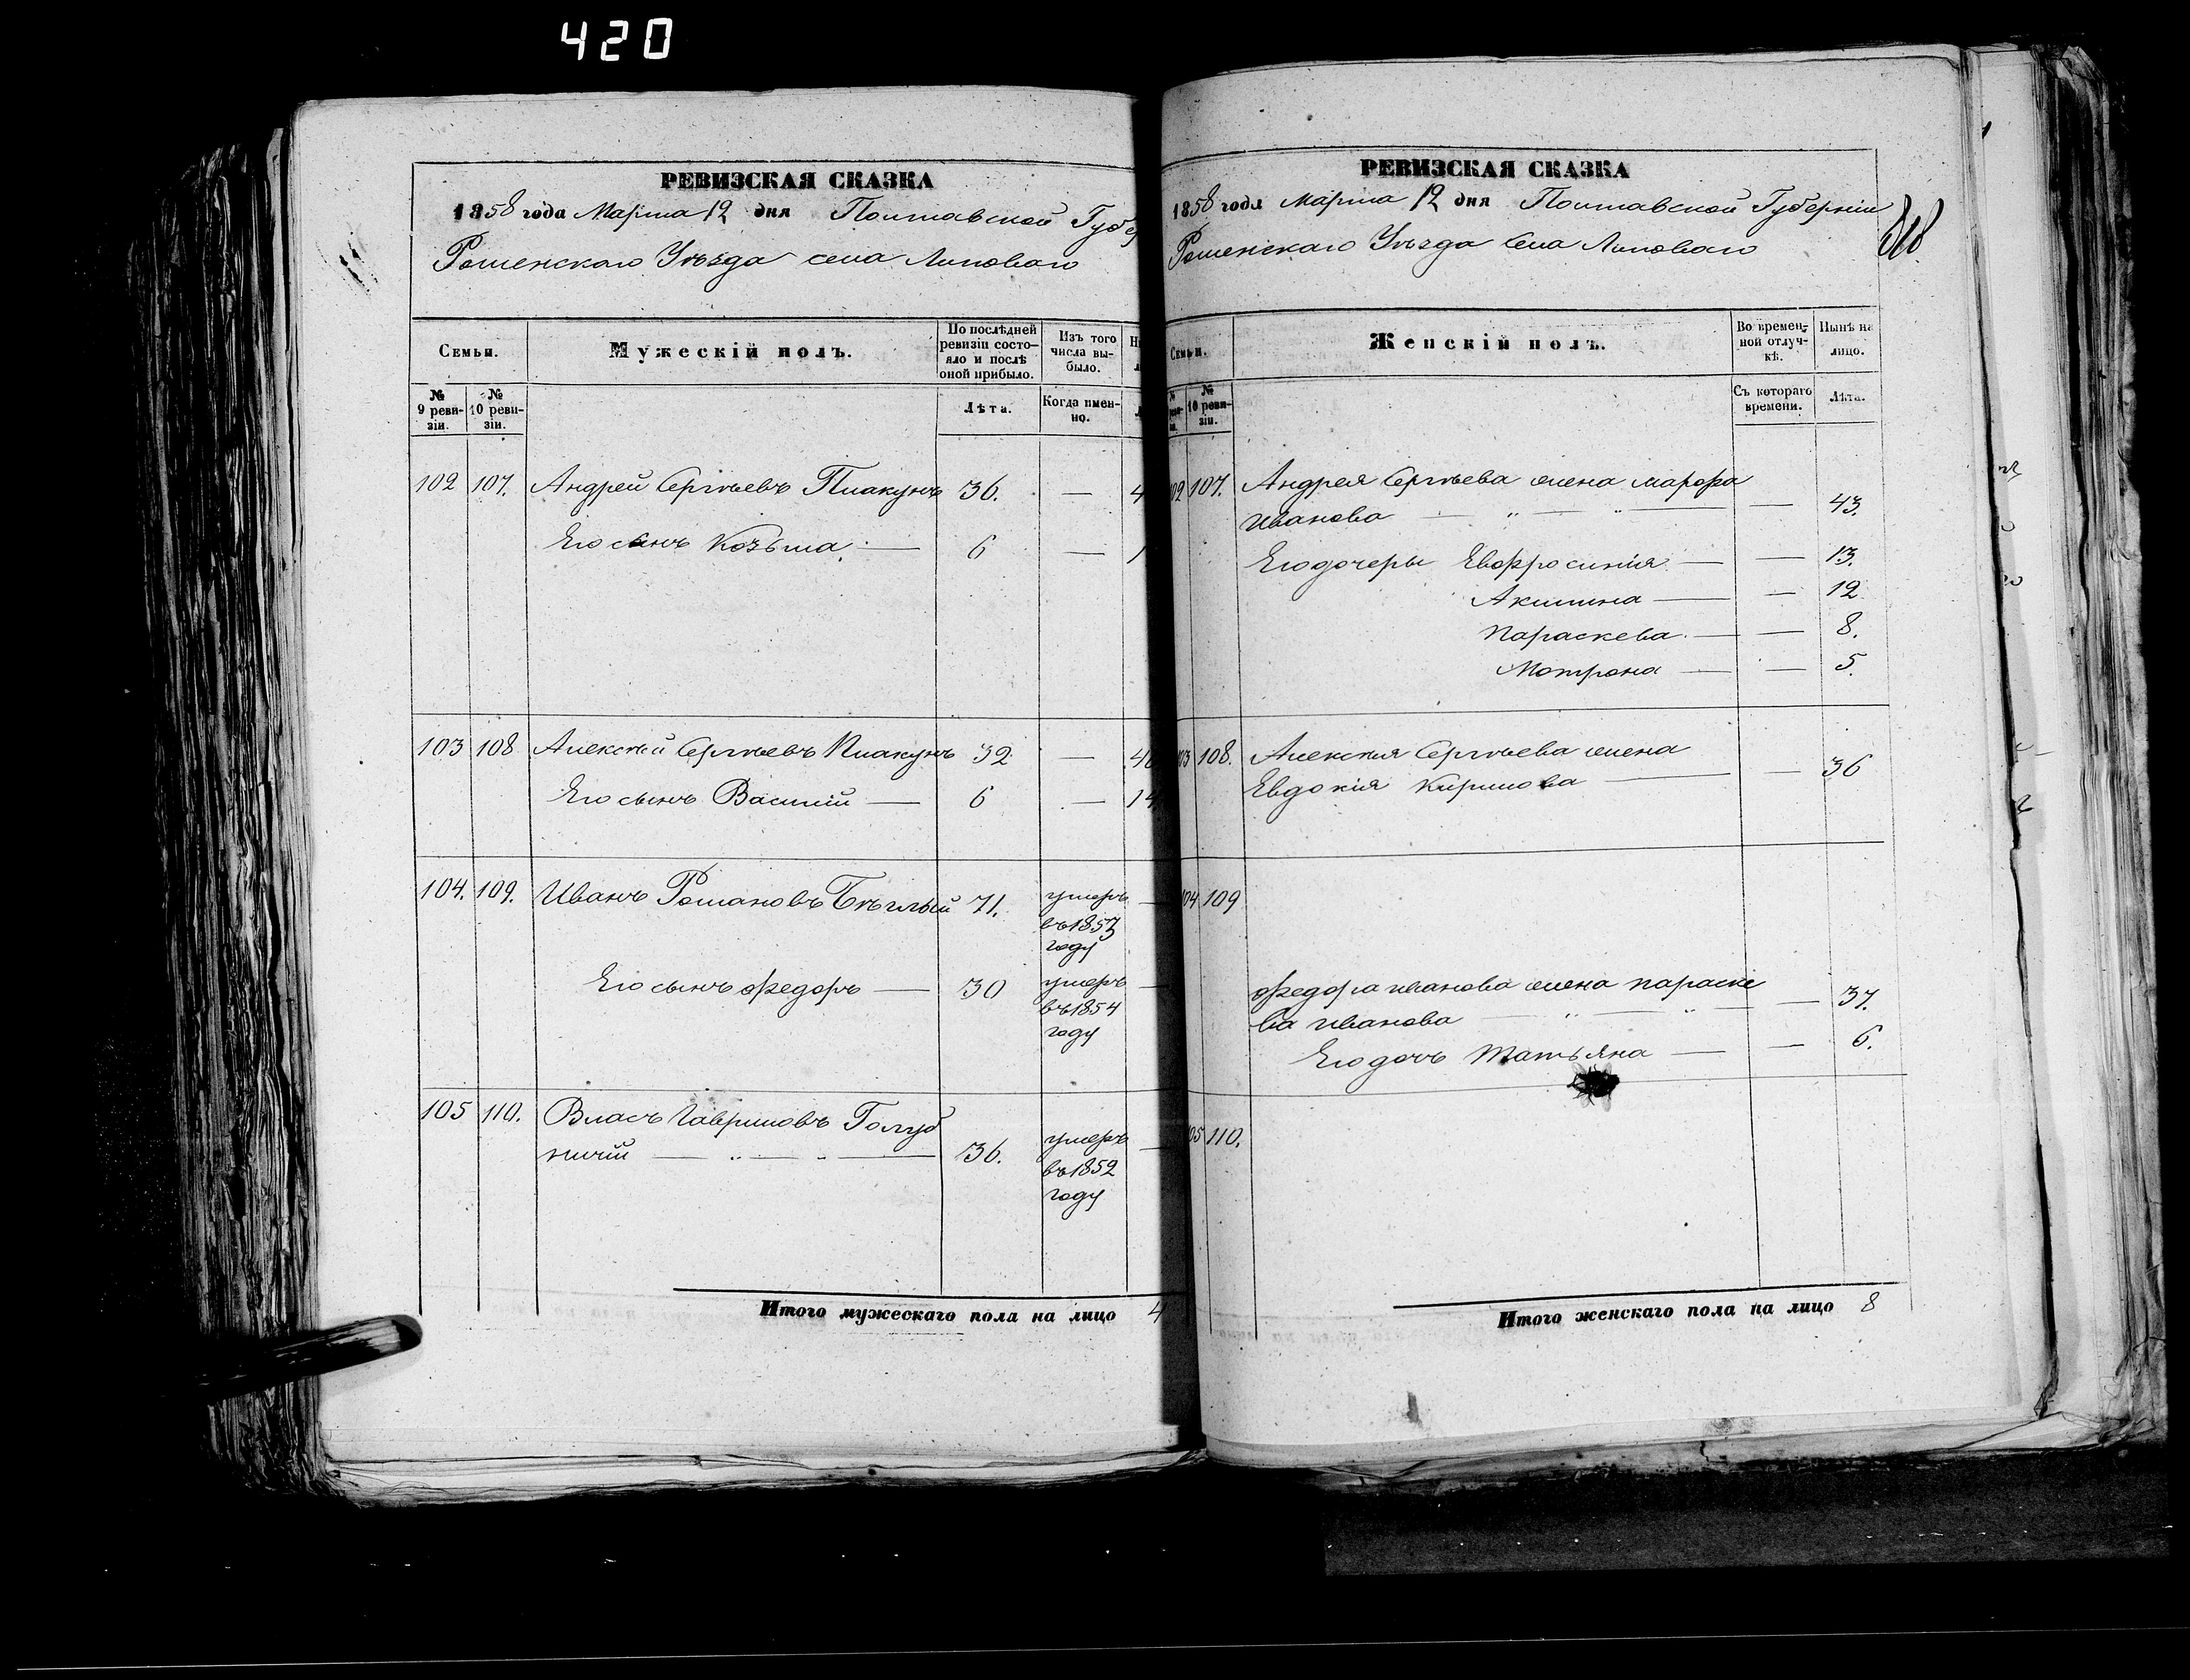 420
РЕВИЗСКАЯ СКАЗКА
1858 года Марта 12 дня Полтавской Губер
Роменскаго Уѣзда села Липоваго
Семьи.
Мужескій полъ.
По послѣдней ревизіи состо-
яло и послѣ
оной прибыло.
Изъ того
числа вы-
было.
№ 9 реви-
зіи.
№ 10 реви-
зіи.
Лѣта.
Когда имен-
но.
102 107. Андрей Сергѣевъ Плакунъ 36. — 4
Его сынъ Козьма — 6 — 1
103 108 Алексѣй Сергѣевъ Плакунъ 32 — 40
Его сынъ Василій — 6 — 14
104. 109. Иванъ Романовъ Бѣглый 71. умеръ —
въ 1857
году
Его сынъ Федоръ — 30 умеръ —
въ 1854
году
105 110. Власъ Гавриловъ Голуб
ничій — „ — „ — 36. умеръ —
въ 1852
году
Итого мужескаго пола на лицо 4
РЕВИЗСКАЯ СКАЗКА
1858 года Марта 12 дня Полтавской Губерніи
Роменскаго Уѣзда Села Липоваго
Семьи.
Женскій полъ.
Во времен-
ной отлуч-
кѣ.
Нынѣ на
лицо.
№ 10 реви-
зіи.
Съ котораго
времени.
Лѣта.
02 107. Андрея Сергѣева жена Марфа
Иванова — „ — „ — — 43.
Его дочеры Евфросинія — — 13.
Акилина — — 12
Параскева — — 8.
Мотрона — — 5.
03 108. Алексѣя Сергѣева жена
Евдокія Кирилова — — 36
04 109
Федора Иванова жена Параске
ва Иванова — „ — „ — — 37.
Его дочь Татьяна — — 6.
05 110.
Итого женскаго пола на лицо 8